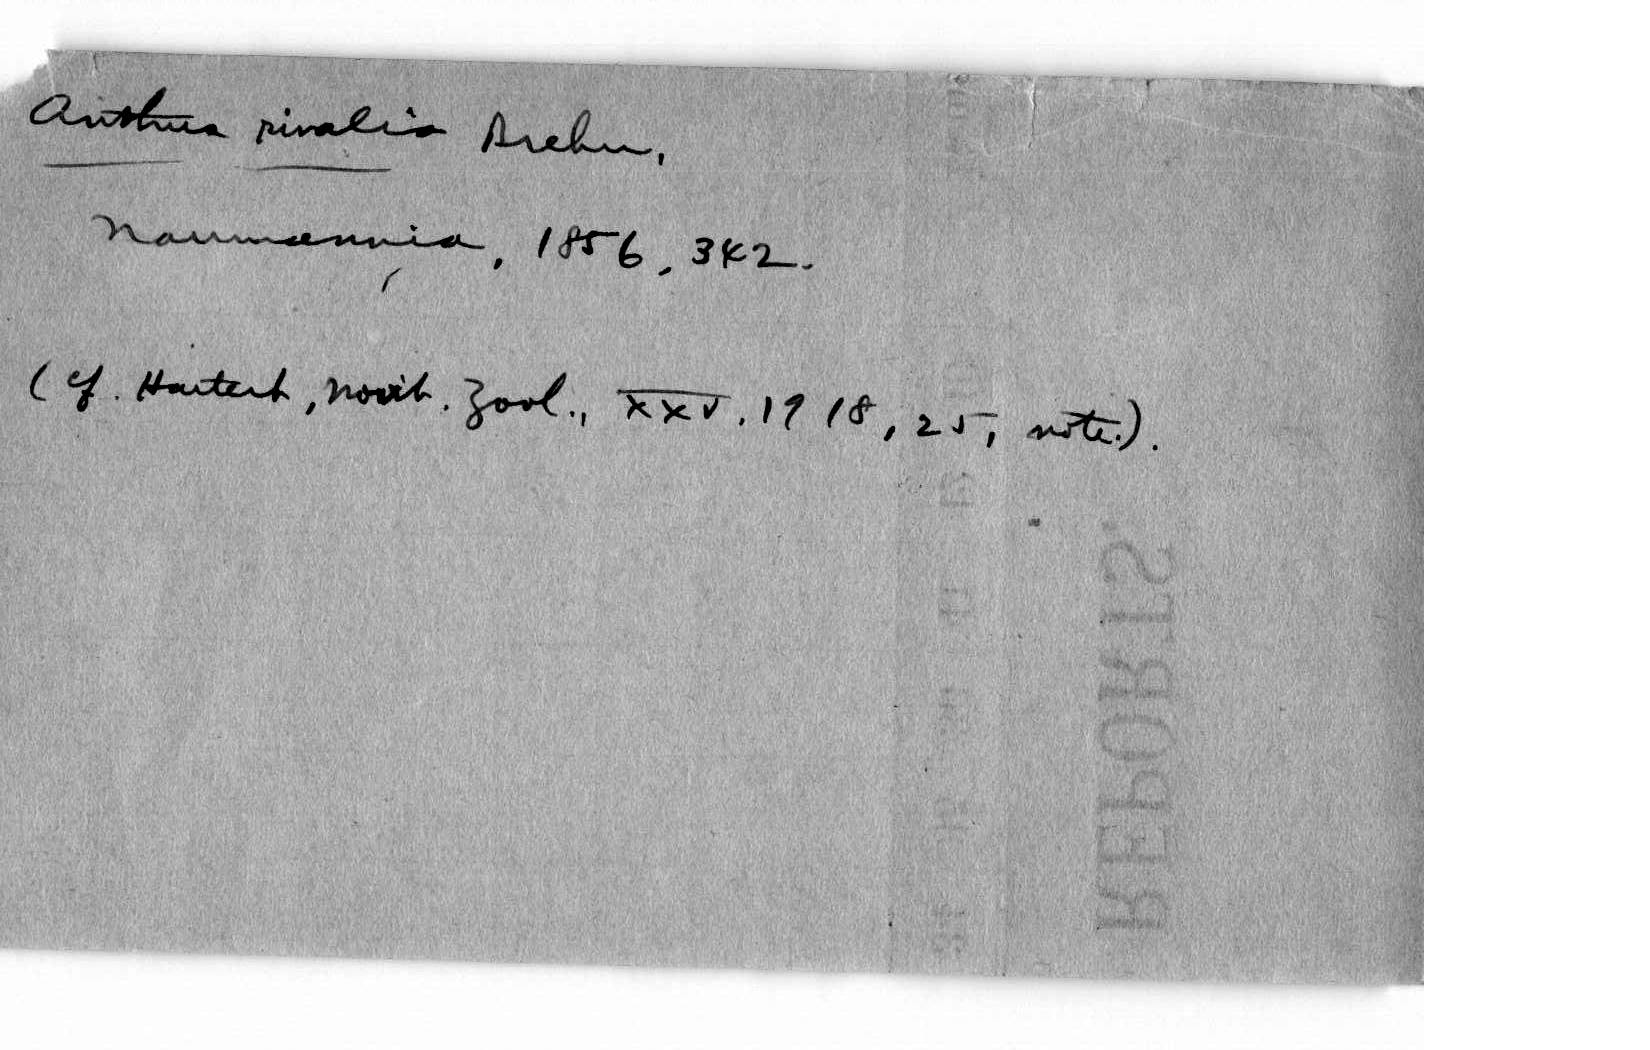 Anthus rivalis Brehm,
Naumannia, 1856, 342.
(cf. Hartert, Novit. Zool., XXV, 1918, 25, note.).
REPORTS